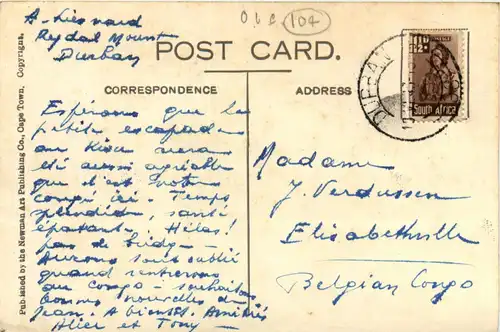 A. Lienard
Rydal Mount
Durban
O.b.C. 104
POST CARD.
CORRESPONDENCE
ADDRESS
Published by the Newman Art Publishing Co., Cape Town. Copyright.
DURBAN
SOUTH AFRICA
Espérons que la
petite escapade
au Kivu aura
été aussi agréable
que l'est notre
congé ici. Temps
splendide, santé
épatante. Hélas!
pas de bridge -
Aurons tout oublié
quand rentrerons
au Congo - souhaitons
bonnes nouvelles de
Jean. A bientôt. Amitiés
Alice et Tony -
Madame
J. Verdussen
Elisabethville
Belgian Congo